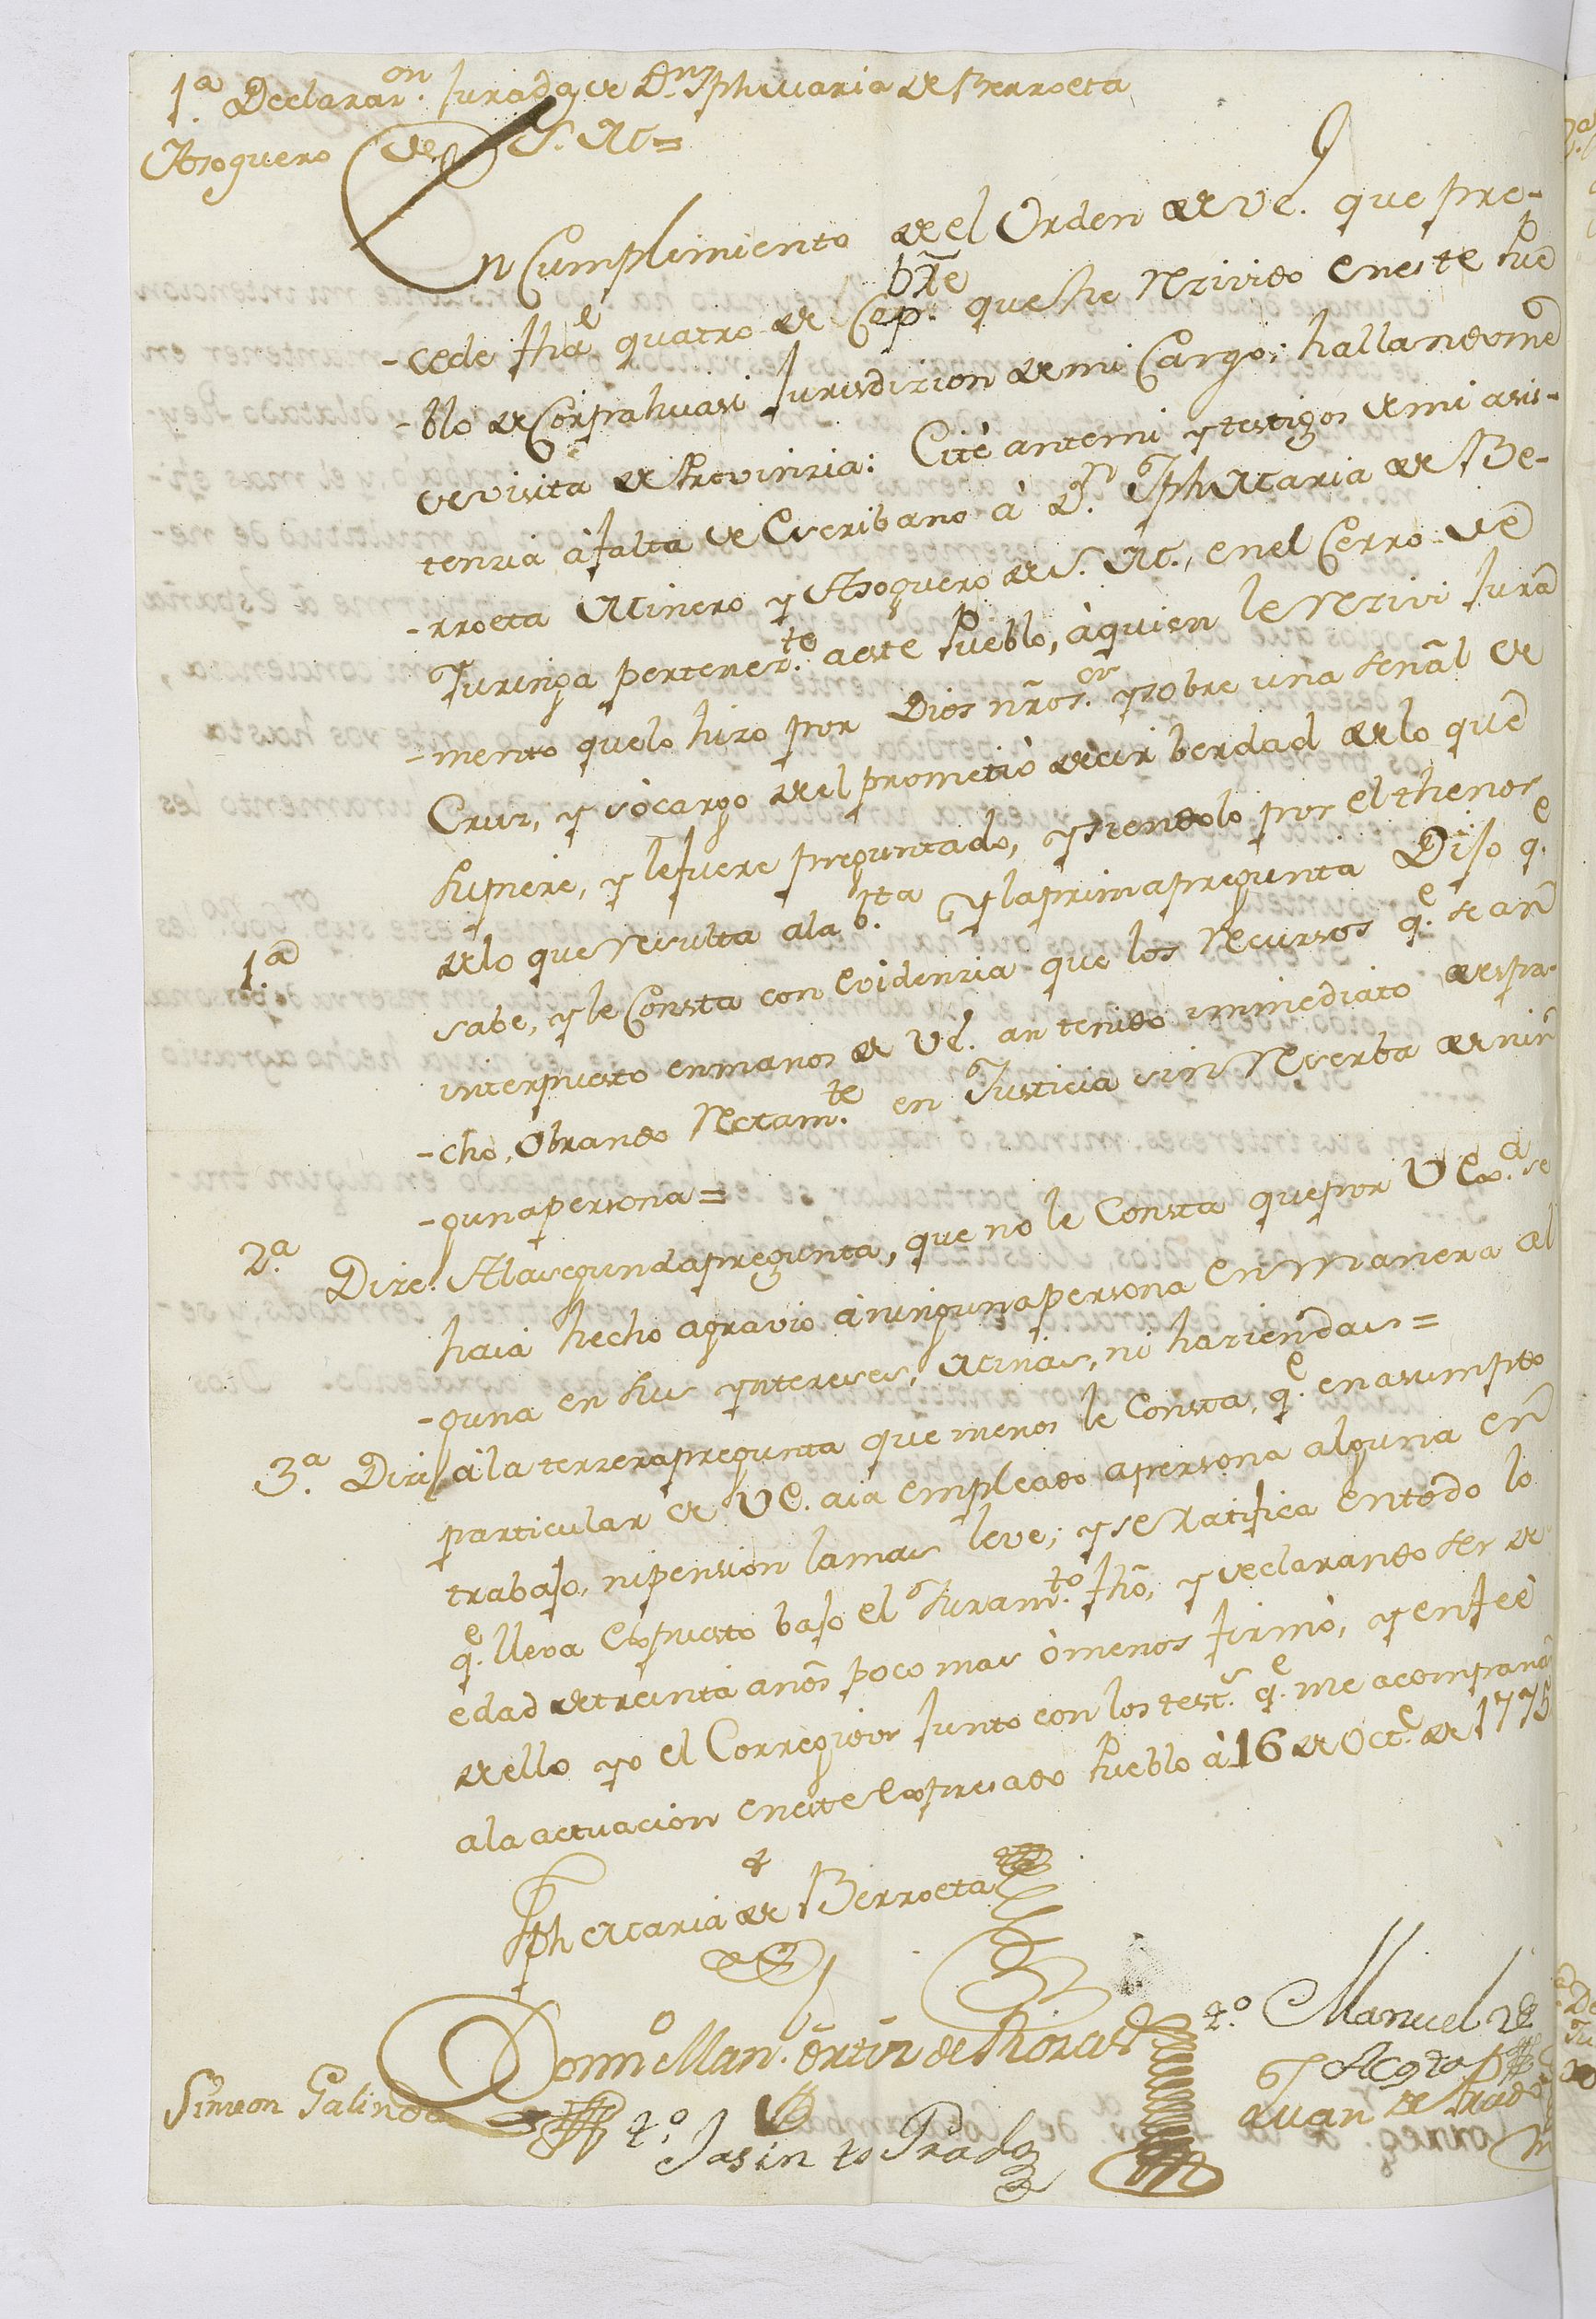 1.ª Declaraz.on Jurada de D.n Jph Maria de Berroeta
Asoguero de S. M. =
En Cumplimiento de el Orden de VE. que pre-
-cede fha quatro de Sep.bre que he rezivido en este Pue
-blo de Corpahuasi Jurisdizion de mi Cargo; hallandome
de visita de Provinzia: Cité ante mi y testigos de mi asis-
tenzia à falta de Escribano à D.n Jph Maria de Be-
-rroeta Minero y Asoguero de S. M., en el Cerro de
Yuringa pertenez.te a este Pueblo, à quien le rezivi Jura
-mento que lo hizo por Dios nro S.or y sobre una señal de
Cruz, y só cargo de el prometió decir berdad de lo que
supiere, y le fuere preguntado, y siendolo por el thenor
1.ª de lo que resulta a la b.lta Y la prima pregunta Dijo q.e
sabe, y le Consta con Evidenzia que los recursos q.e se an
interpuesto en manos de VE. an tenido immediato despa-
-cho, Obrando rectam.te en Justicia sin reserba de nin
-guna persona =
2.ª Dize: A la segunda pregunta, que no le Consta que por VEx.a se
haia hecho agravio à ninguna persona en manera al
-guna en sus yntereses, Minas, ni haziendas =
3.ª Dize à la terzera pregunta que menos le Consta, q.e en asumpto
particular de VE. aia empleado a persona alguna en
trabajo, ni pension la mas leve; y se ratifica en todo lo
q.e lleva Expuesto bajo el Juram.to fho, y declarando ser de
edad de treinta años poco mas ò menos firmó, y en feé
de ello yo el Corregidor Junto con los test.s q.e me acompañan
a la actuacion en este Expresado Pueblo à 16 de Oct.e de 1775
Jph Maria de Berroeta
Domn Man.
t.o Manuel de
Acosta
Simeon Galindo
t.o Jasinto Prado
Juan de Prado